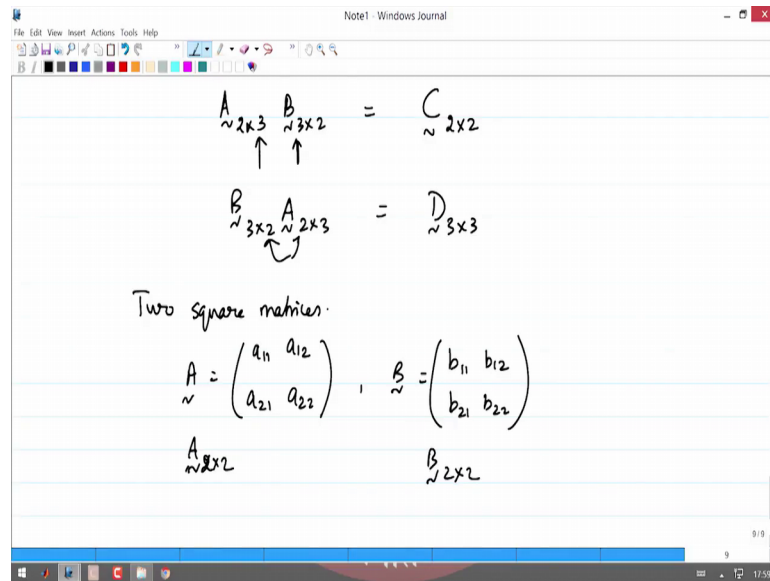 Note1 - Windows Journal
File Edit View Insert Actions Tools Help
A 2x3 B 3x2 = C 2x2
B 3x2 A 2x3 = D 3x3
Two square matrices.
A = ( a11 a12 , B = ( b11 b12
a21 a22 ) b21 b22 )
A 2x2 B 2x2
9/9
9
17:59